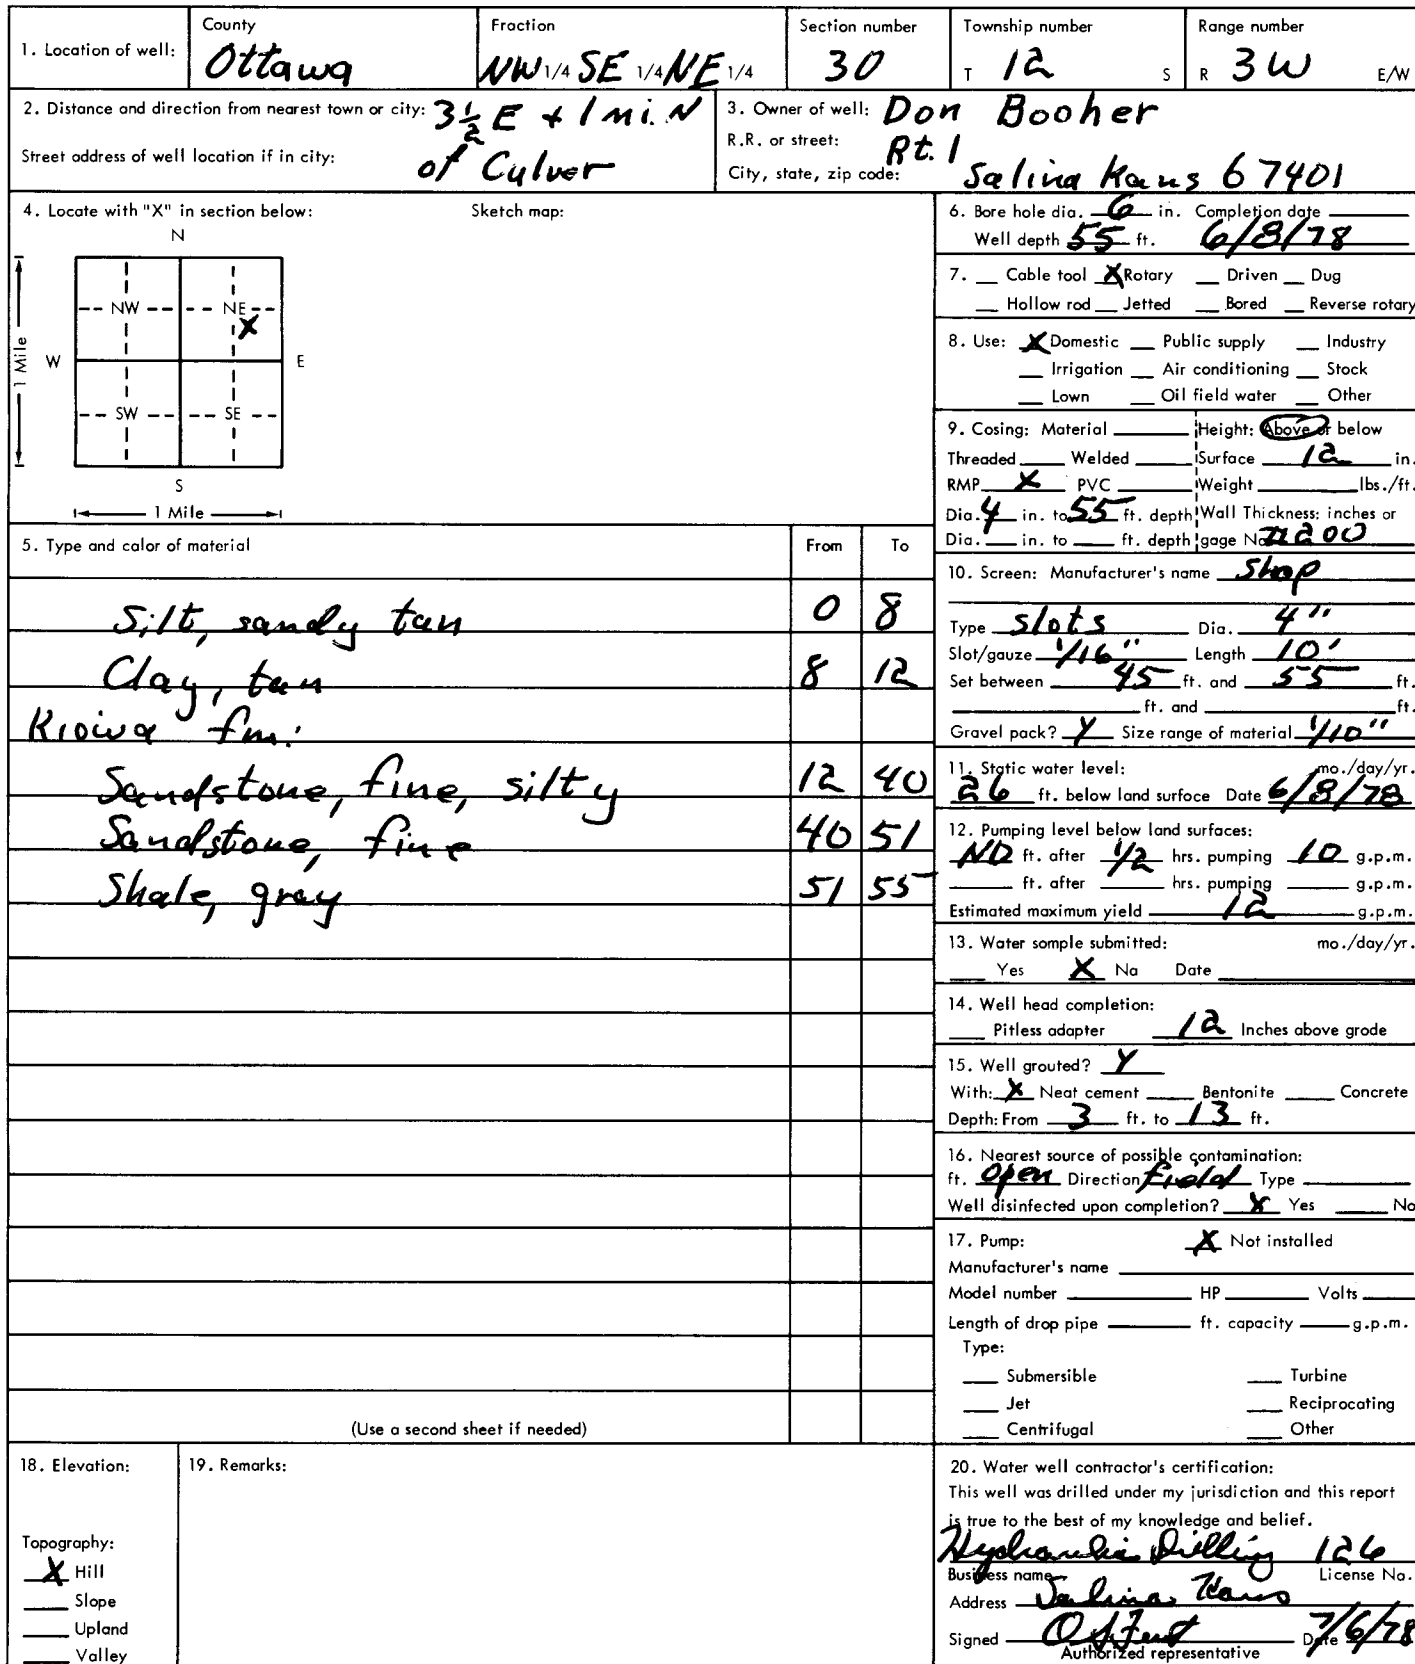 1. Location of well:
County
Ottawa
Fraction
NW 1/4 SE 1/4 NE 1/4
Section number
30
Township number
T 12 S
Range number
R 3W E/W
2. Distance and direction from nearest town or city: 3 1/2 E + 1 mi. N
Street address of well location if in city: of Culver
3. Owner of well: Don Booher
R.R. or street: Rt. 1
City, state, zip code: Salina Kans 67401
4. Locate with "X" in section below:
Sketch map:
N
NW NE
X
W E
SW SE
S
1 Mile
1 Mile
5. Type and calor of material From To
Silt, sandy tan 0 8
Clay, tan 8 12
Kiowa fm.
Sandstone, fine, silty 12 40
Sandstone, fine 40 51
Shale, gray 51 55
(Use a second sheet if needed)
6. Bore hole dia. 6 in. Completion date
Well depth 55 ft. 6/8/78
7. Cable tool X Rotary Driven Dug
Hollow rod Jetted Bored Reverse rotary
8. Use: X Domestic Public supply Industry
Irrigation Air conditioning Stock
Lown Oil field water Other
9. Cosing: Material Height: Above or below
Threaded Welded Surface 12 in.
RMP X PVC Weight lbs./ft.
Dia. 4 in. to 55 ft. depth Wall Thickness: inches or
Dia. in. to ft. depth gage No. #200
10. Screen: Manufacturer's name Shop
Type slots Dia. 4"
Slot/gauze 1/16" Length 10'
Set between 45 ft. and 55 ft.
ft. and ft.
Gravel pack? Y Size range of material 1/10"
11. Static water level: mo./day/yr.
26 ft. below land surface Date 6/8/78
12. Pumping level below land surfaces:
ND ft. after 1/2 hrs. pumping 10 g.p.m.
ft. after hrs. pumping g.p.m.
Estimated maximum yield 12 g.p.m.
13. Water somple submitted: mo./day/yr.
Yes X Na Date
14. Well head completion:
Pitless adapter 12 Inches above grode
15. Well grouted? Y
With: X Neat cement Bentonite Concrete
Depth: From 3 ft. to 13 ft.
16. Nearest source of possible contamination:
ft. open Direction field Type
Well disinfected upon completion? X Yes No
17. Pump: X Not installed
Manufacturer's name
Model number HP Volts
Length of drop pipe ft. capacity g.p.m.
Type:
Submersible Turbine
Jet Reciprocating
Centrifugal Other
18. Elevation:
Topography:
X Hill
Slope
Upland
Valley
19. Remarks:
20. Water well contractor's certification:
This well was drilled under my jurisdiction and this report
is true to the best of my knowledge and belief.
Hydraulic Drilling 126
Business name License No.
Address Salina Kans
Signed Date 7/6/78
Authorized representative